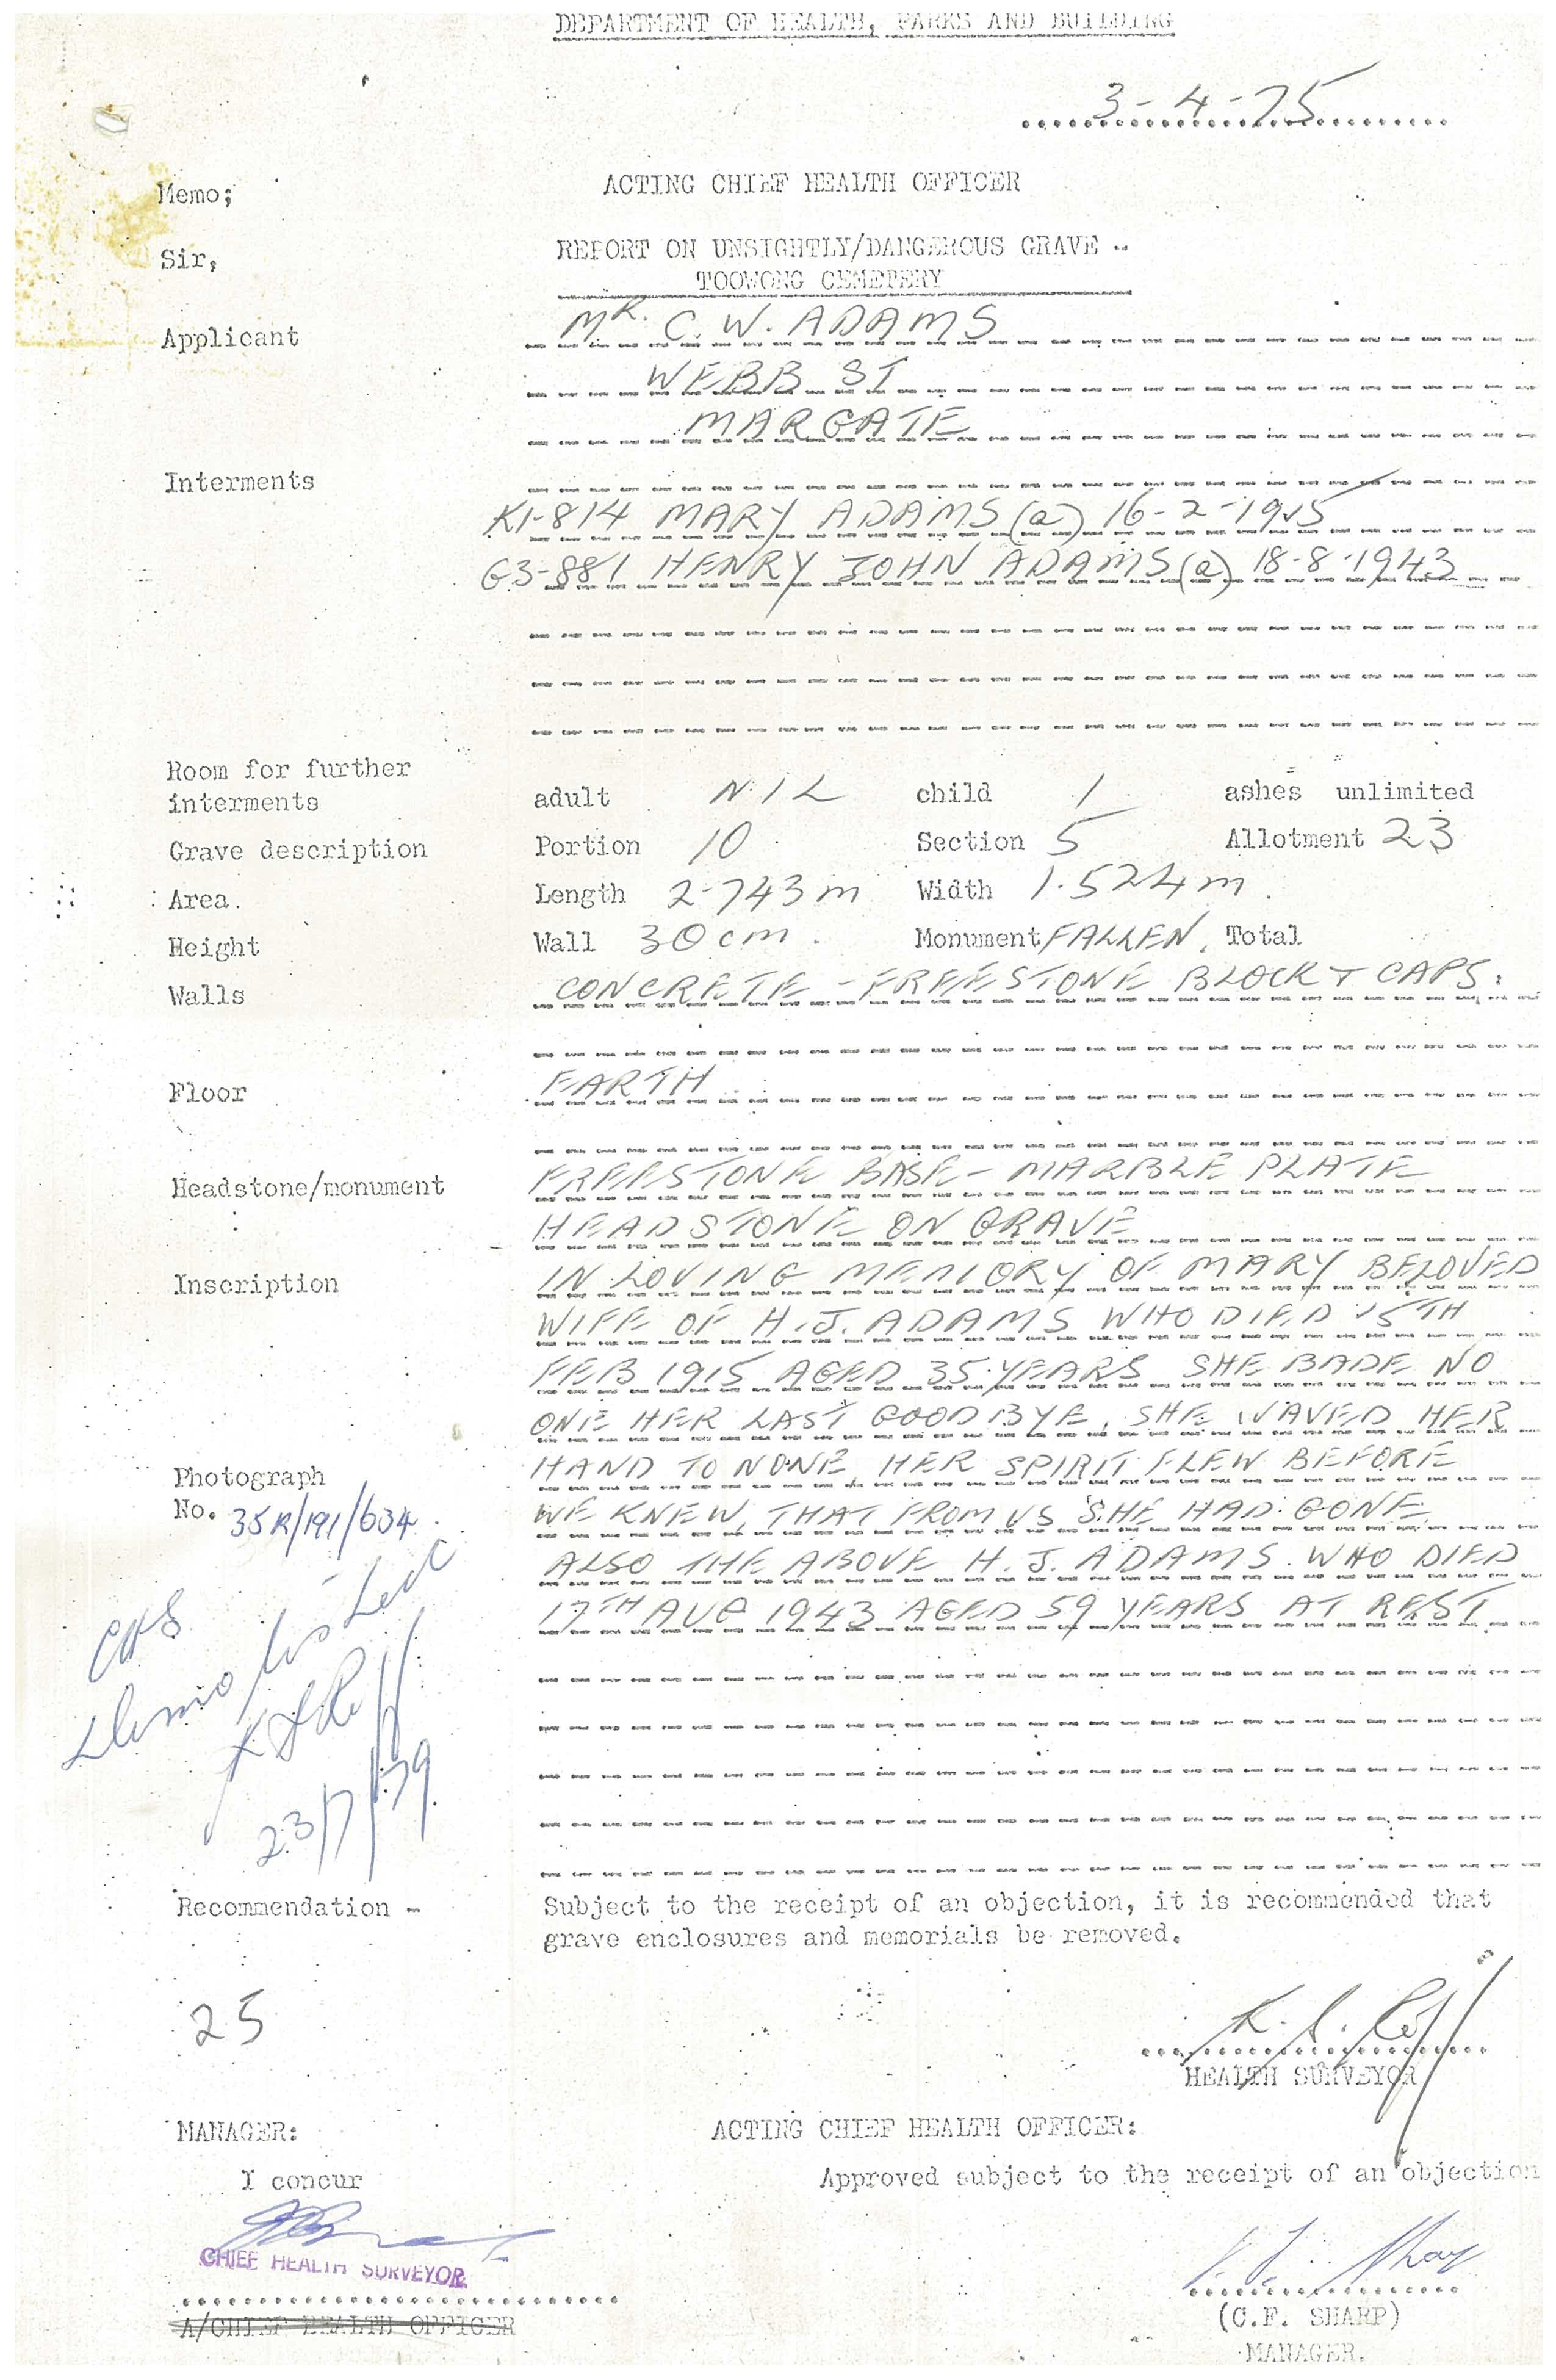 DEPARTMENT OF HEALTH, PARKS AND BUILDING
3-4-75
Memo; ACTING CHIEF HEALTH OFFICER
Sir, REPORT ON UNSIGHTLY/DANGEROUS GRAVE -
TOOWONG CEMETERY
Applicant MR. C. W. ADAMS
WEBB ST
MARGATE
Interments
K1-814 MARY ADAMS (a) 16-2-1915
G3-881 HENRY JOHN ADAMS (a) 18-8-1943
Room for further
interments adult NIL child 1 ashes unlimited
Grave description Portion 10 Section 5 Allotment 23
Area. Length 2.743m Width 1.524m
Height Wall 30cm. Monument FALLEN. Total
Walls CONCRETE - FREESTONE BLOCK + CAPS.
Floor EARTH
Headstone/monument FREESTONE BASE - MARBLE PLATE
HEADSTONE ON GRAVE
Inscription IN LOVING MEMORY OF MARY BELOVED
WIFE OF H.J. ADAMS WHO DIED 15TH
FEB 1915 AGED 35 YEARS SHE BADE NO
ONE HER LAST GOODBYE, SHE WAVED HER
Photograph HAND TO NONE, HER SPIRIT FLEW BEFORE
No. 35R/191/634. WE KNEW, THAT FROM US SHE HAD GONE.
ALSO THE ABOVE H. J. ADAMS. WHO DIED
17TH AUG 1943 AGED 59 YEARS AT REST
CHS
Demolished
23/7/79.
Recommendation - Subject to the receipt of an objection, it is recommended that
grave enclosures and memorials be removed.
25
HEALTH SURVEYOR
MANAGER: ACTING CHIEF HEALTH OFFICER:
I concur Approved subject to the receipt of an objection
CHIEF HEALTH SURVEYOR
A/CHIEF HEALTH OFFICER
(C.F. SHARP)
MANAGER.